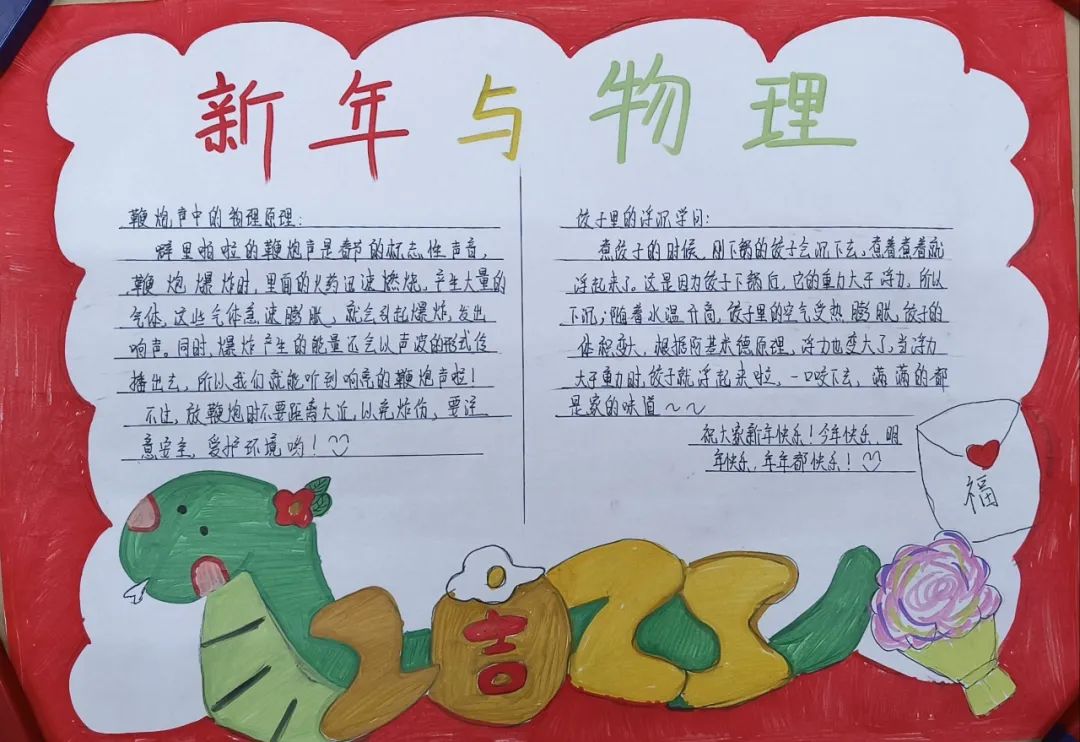 新年与物理
鞭炮声中的物理原理：
噼里啪啦的鞭炮声是春节的标志性声音，
鞭炮爆炸时，里面的火药迅速燃烧，产生大量的
气体，这些气体急速膨胀，就会引起爆炸，发出
响声。同时，爆炸产生的能量还会以声波的形式传
播出去，所以我们就能听到响亮的鞭炮声啦！
不过，放鞭炮时不要距离太近，以免炸伤，要注
意安全，爱护环境哟！
饺子里的浮沉学问：
煮饺子的时候，刚下锅的饺子会沉下去，煮着煮着就
浮起来了。这是因为饺子下锅后，它的重力大于浮力，所以
下沉；随着水温升高，饺子里的空气受热膨胀，饺子的
体积变大，根据阿基米德原理，浮力也变大了，当浮力
大于重力时，饺子就浮起来啦，一口咬下去，满满的都
是家的味道～～
祝大家新年快乐！今年快乐，明
年快乐，年年都快乐！
福
2吉25